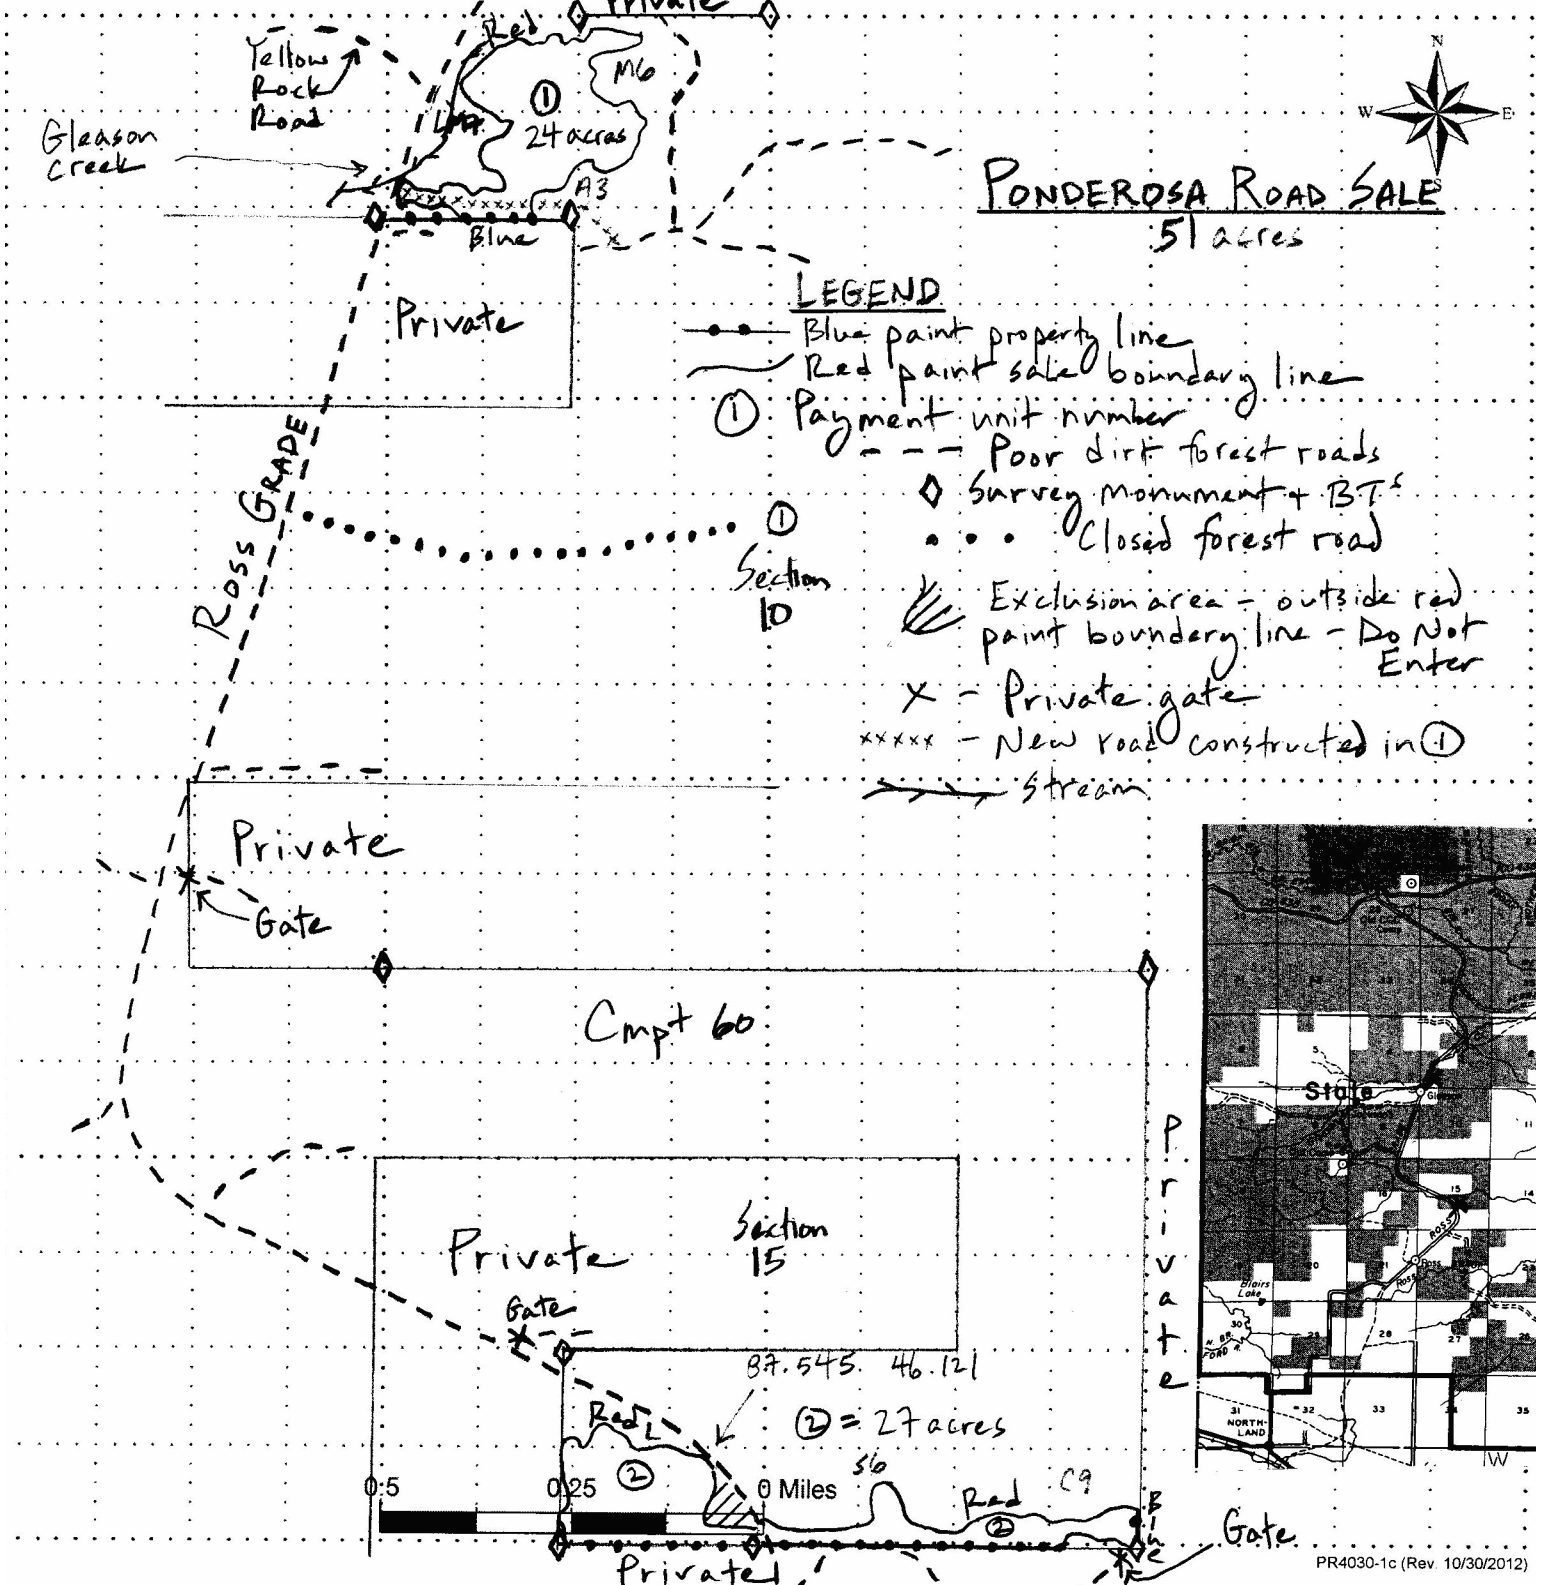 Private
Red
Yellow
Rock
Road
M6
1
24 acres
Gleason
Creek
A3
Blue
N
W
E
S
PONDEROSA ROAD SALE
51 acres
Private
LEGEND
Blue paint property line
Red paint sale boundary line
1 Payment unit number
Poor dirt forest roads
Survey Monument + BTs
Closed forest road
Exclusion area - outside red
paint boundary line - Do Not
Enter
X - Private gate
xxxxx - New road constructed in 1
Stream
ROSS GRADE
1
Section
10
Private
Gate
Cmpt 60
Private
Private
Section
15
Gate
87.545. 46.121
2 = 27 acres
Red
2
0.5
0.25
0 Miles
S6
C9
Red
2
Blue
Gate
Private
State
15
14
Ross
Blairs
Lake
30
28
27
31
32
33
34
35
NORTH-
LAND
W
PR4030-1c (Rev. 10/30/2012)